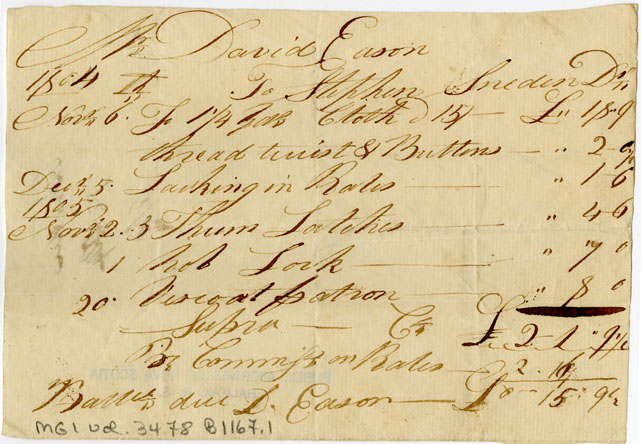 Mr David Eason
1804 To Stephen Sneden Dr
Novr 6 To 1 1/4 Yds Cloth @ 15/ — £ " 18 " 9
thread twist & Buttons — " 2 -
Decr 5 Lacking in Rales — " 1 - 6
1805
Novr 2 3 Thum Latches — " 4 6
1 Nob Lock — " 7 0
20 Vescoat patron — " 8 0
Supra — Cr £ 2 - 1 " 9 1/2
By Commiss on Rales — 2 . 16
Ballce due D. Eason — £0 - 15 . 9 1/2
MG1 Vol. 3478 B1167.1